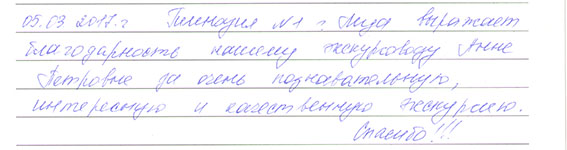 05.03 2017.г Гимназия №1 г. Лида выражает
благодарность нашему экскурсоводу Анне
Петровне за очень познавательную,
интересную и качественную экскурсию.
Спасибо!!!